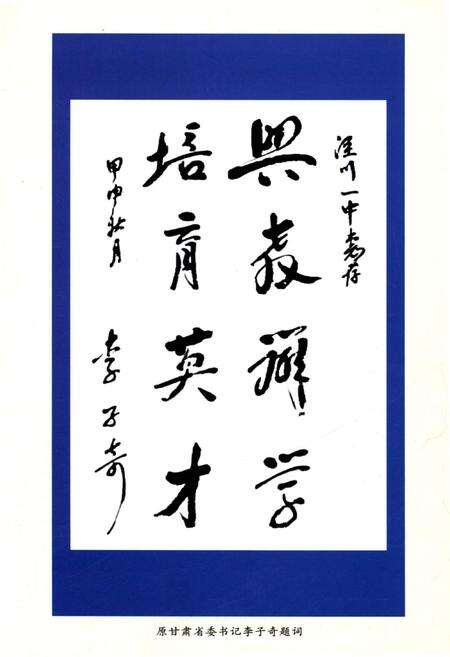 泾川一中惠存
興教辦学
培育英才
甲申秋月
李子奇
原甘肃省委书记李子奇题词